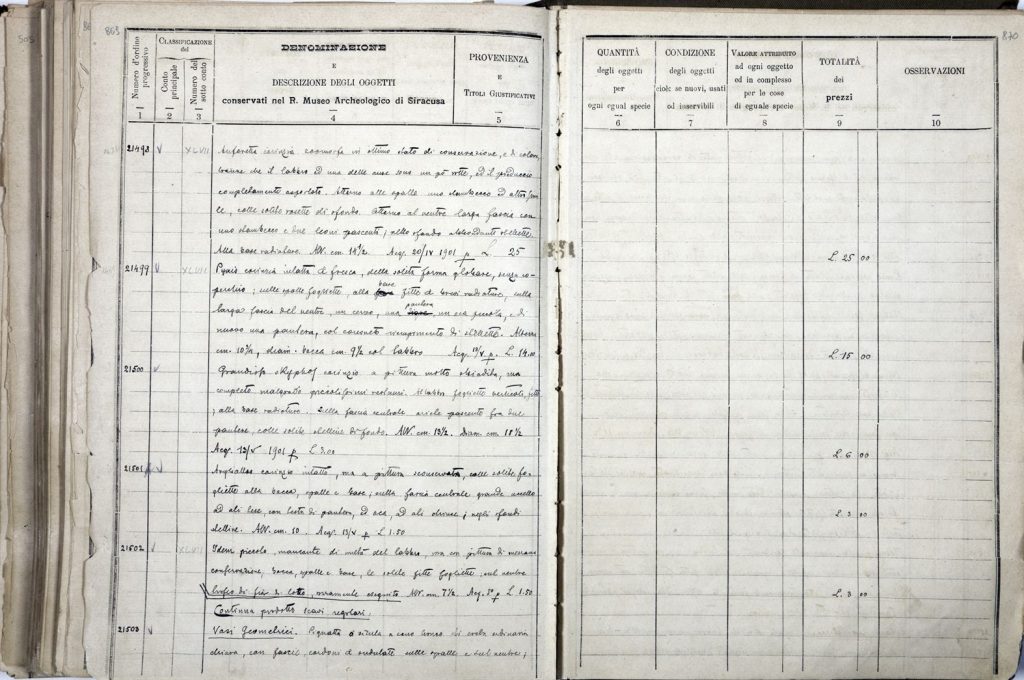 505
86
869
Numero d'ordine progressivo
1
Classificazione del
Conto principale
2
Numero del sotto conto
3
DENOMINAZIONE
E
DESCRIZIONE DEGLI OGGETTI
conservati nel R. Museo Archeologico di Siracusa
4
PROVENIENZA
E
Titoli Giustificativi
5
21498 V XLVII Anforetta corinzia zoomorfa in ottimo stato di conservazione, e di colori,
tranne che il labbro ed una delle anse sono un pò rotte, ed il
completamente asportato. Attorno alle spalle uno stambecco ed altro
le, colle solite rosette di sfondo. Attorno al ventre larga fascia con
uno stambecco e due leoni pascenti; nello sfondo abbondanti stellette
Alla base radiature. Alt. cm. 14½ Acq. 20/IV 1901 p. L. 25
21499 V XLVII Pyxis corinzia intatta e fresca, della solita forma globare, senza co-
perchio; sulle spalle fogliette, alla base fitte e brevi radiature, sulla
larga fascia del ventre, un cervo, una pantera, un' oca piccola, e di
nuovo una pantera, col consueto riempimento di stellette. Altezza
cm. 10¾, diam. bocca cm. 9½ col labbro Acq. 12/V p. L. 14.00
21500 V Grandioso skyphos corinzio a pittura molto sbiadita, ma
completo malgrado piccolissimi restauri. Al labbro fogliette verticali fitte
; alla base radiature. Nella fascia centrale ariete pascente fra due
pantere, colle solite stelline di fondo. Alt. cm. 13½. Diam. cm 18½
Acq. 12/V 1901 p. L. 3.00
21501 V Aryballos corinzio intatto, ma a pittura sconservata, colle solite fo-
gliette alla bocca, spalle e base; nella fascia centrale grande uccello
ad ali tese, con testa di pantera, ed oca, ad ali chiuse; negli sfondi
stelline. Alt. cm. 10. Acq. 12/V p. L. 1.50
21502 V XLVII Idem piccolo, mancante di metà del labbro, ma con pittura di mezzana
conservazione; bocca, spalle e base, le solite fitte fogliette; sul ventre
di fior di loto, eseguito Alt. cm. 7½. Acq. p. L. 1.50
Continua prodotto scavi regolari.
21503 V Vasi Geometrici. Pignatta o situla a cono tronco di creta ordinaria
chiara, con fascie, cordoni ed ondulati sulle spalle e sul ventre;
870
QUANTITÀ
degli oggetti
per
ogni egual specie
6
CONDIZIONE
degli oggetti
cioè: se nuovi, usati
od inservibili
7
Valore attribuito
ad ogni oggetto
od in complesso
per le cose
di eguale specie
8
TOTALITÀ
dei
prezzi
9
OSSERVAZIONI
10
L. 25 00
L. 15 00
L. 6 00
L. 3 00
L. 3 00